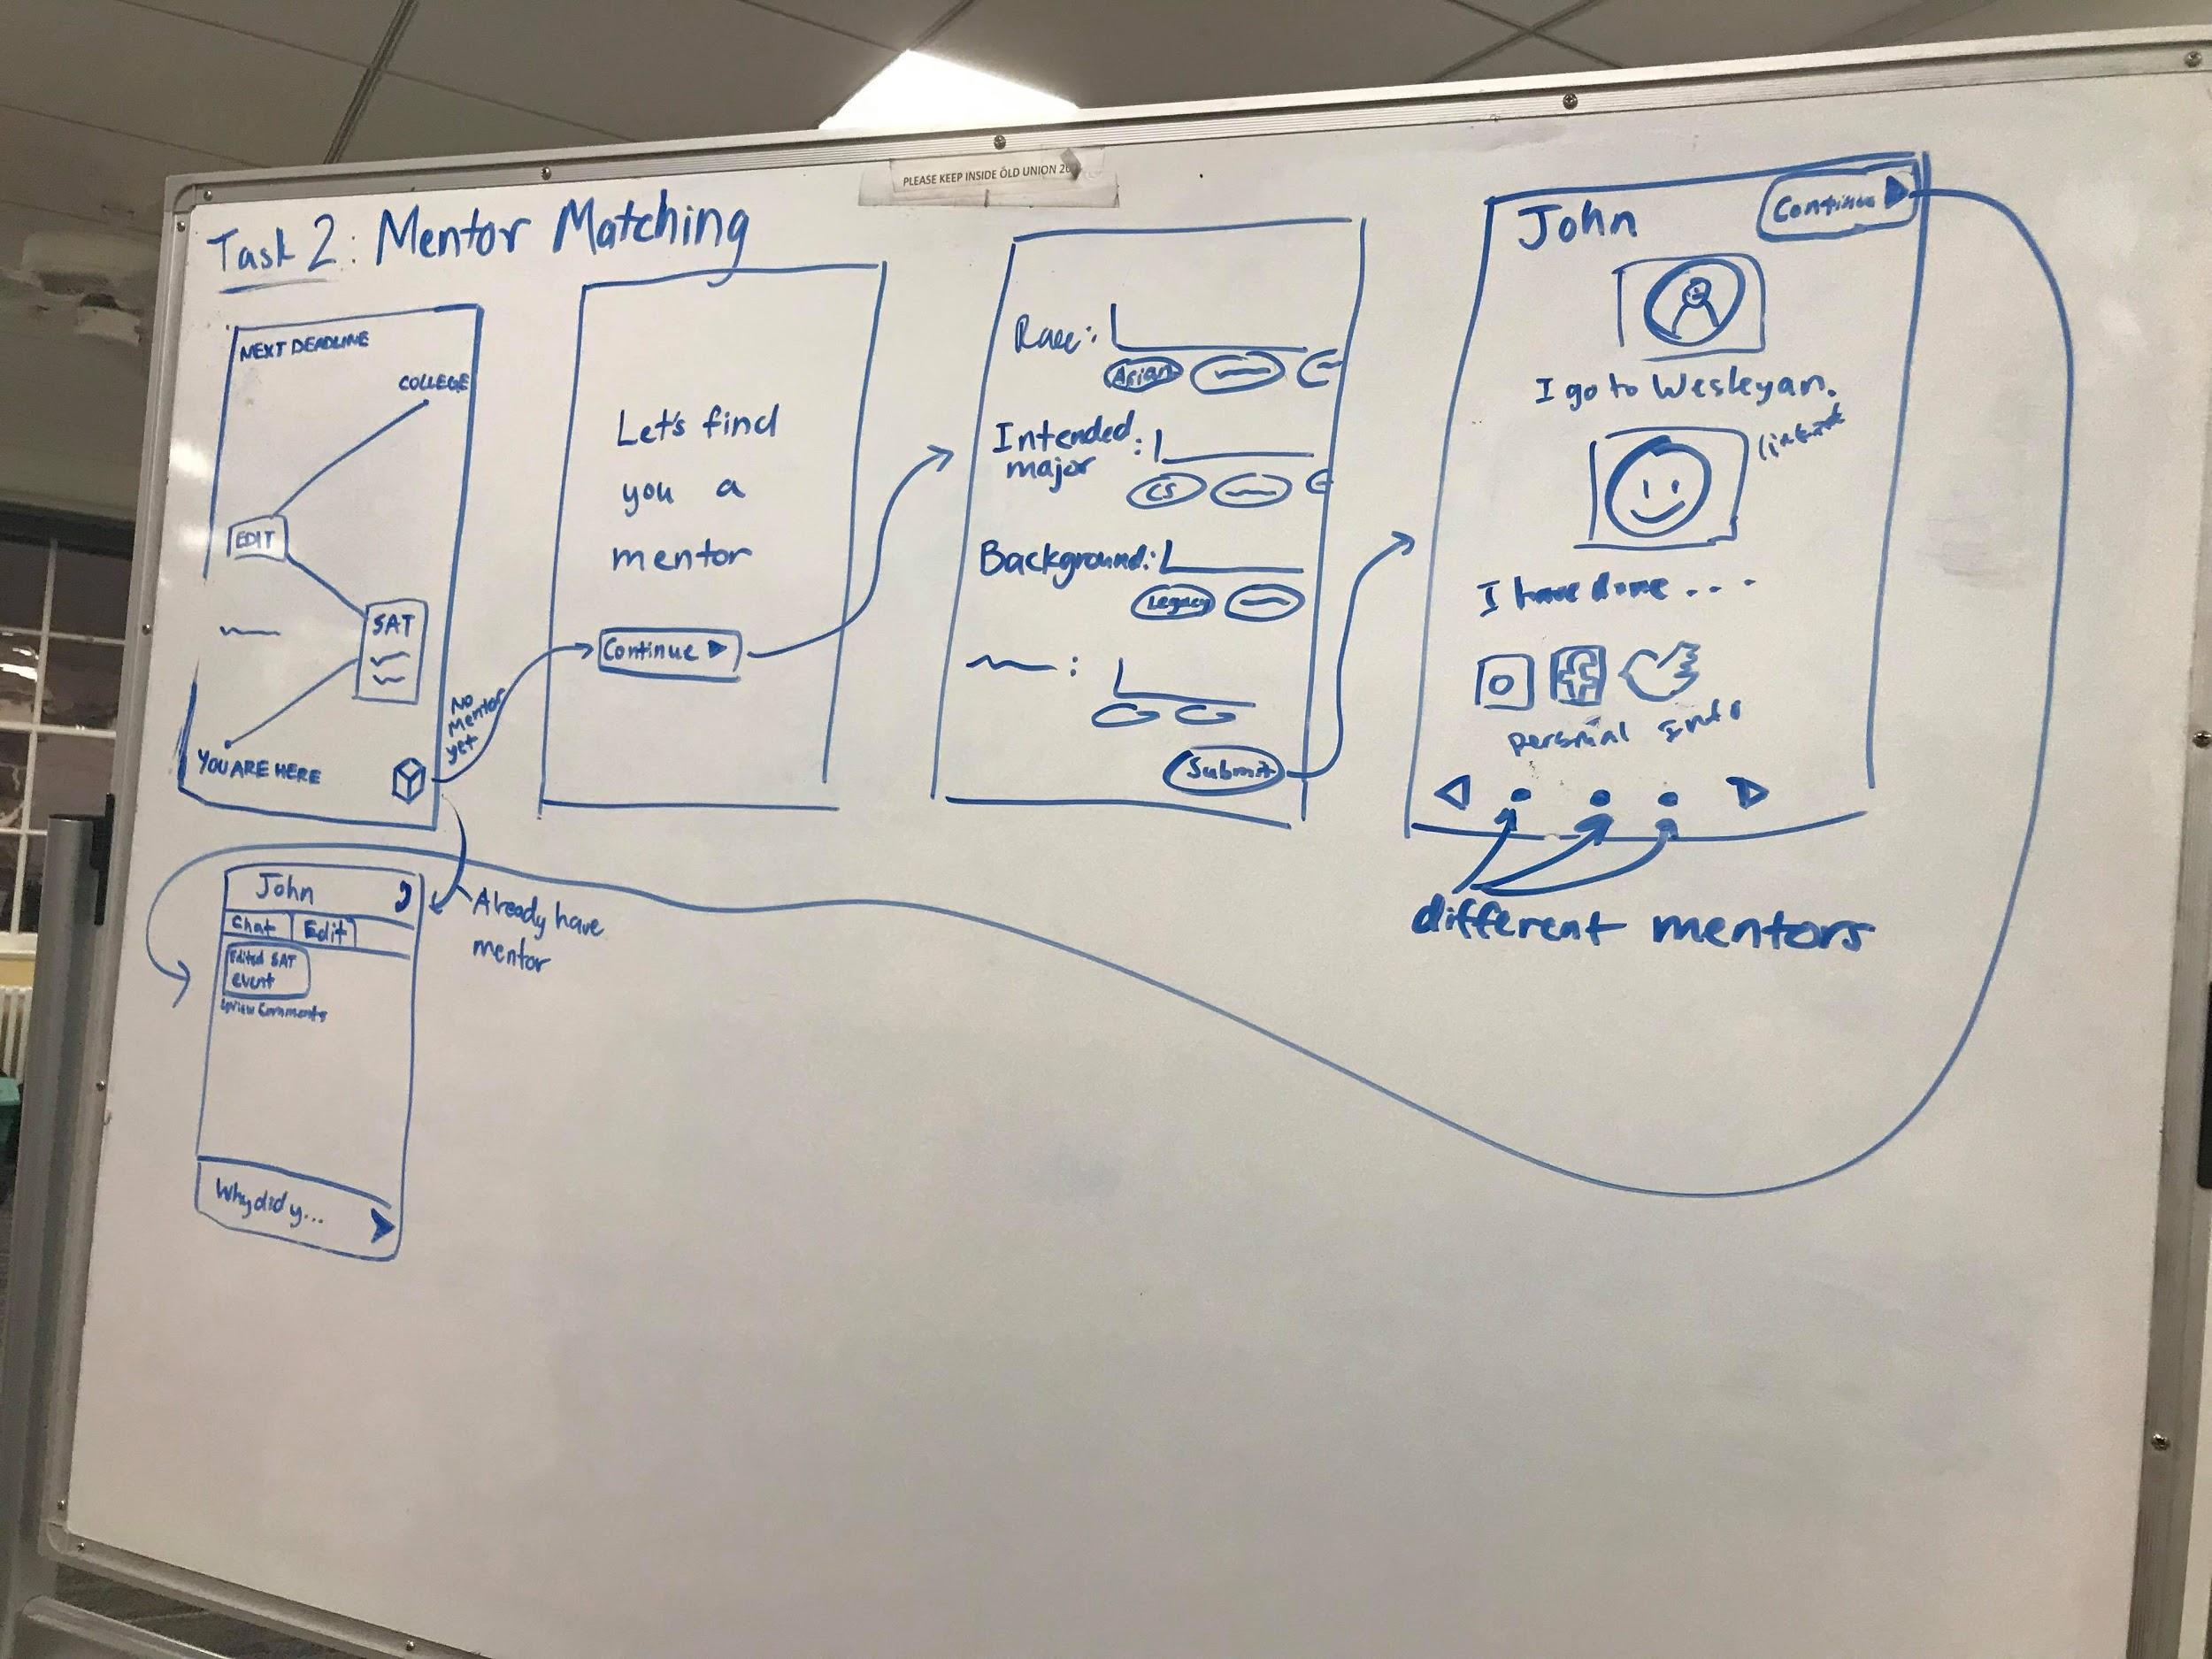 PLEASE KEEP INSIDE OLD UNION
Task 2: Mentor Matching
NEXT DEADLINE
COLLEGE
EDIT
SAT
YOU ARE HERE
No
Mentor
yet
Let's find
you a
mentor
Continue
Race:
Asian
Intended
major :
CS
Background:
Legacy
:
Submit
John
Continue
I go to Wesleyan.
I have done ...
personal info
different mentors
Already have
mentor
John
Chat
Edit
Edited SAT
event
Comments
Why did y...